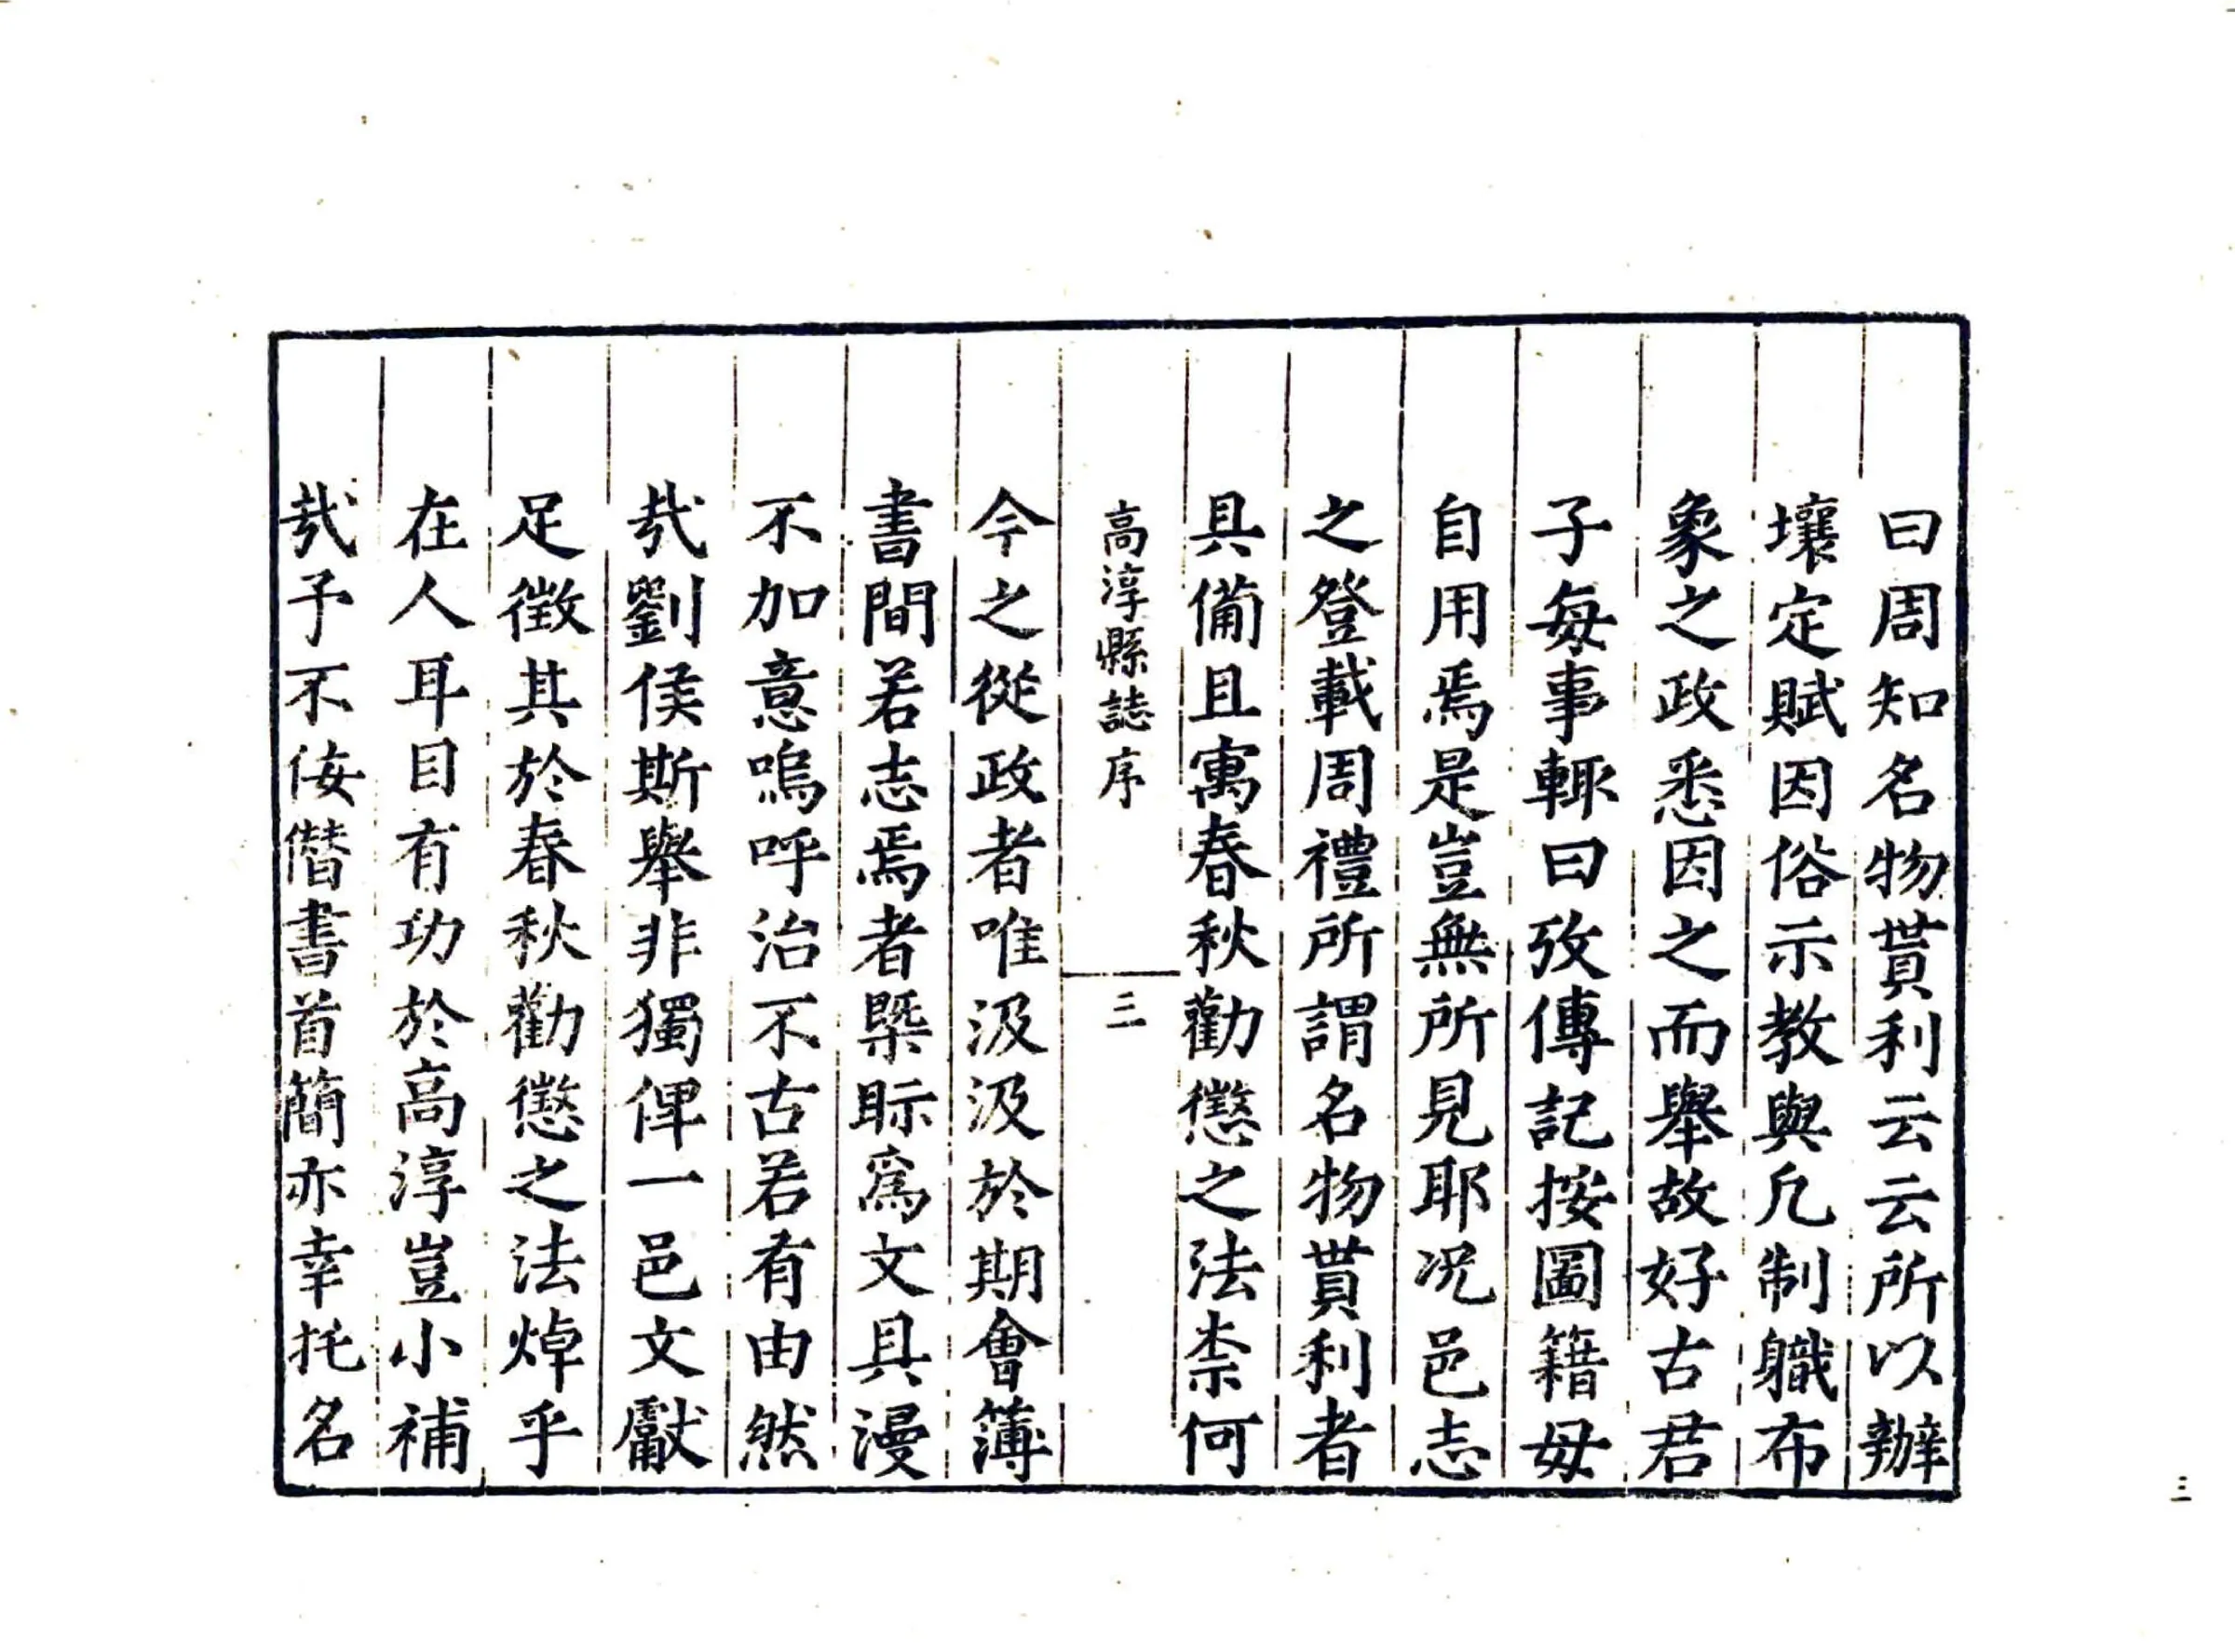 曰周知名物貰利云云所以辦
壤定賦因俗示教與凢制職布
象之政悉因之而舉故好古君
子每事輙曰攷傳記按圖籍毋
自用焉是豈無所見耶况邑志
之登載周禮所謂名物貰利者
具備且寓春秋勸懲之法柰何
高淳縣誌序
三
今之從政者唯汲汲於期會簿
書間若志焉者槩眎為文具漫
不加意嗚呼治不古若有由然
㢤劉侯斯舉非獨俾一邑文獻
足徵其於春秋勸懲之法焯乎
在人耳目有功於高淳豈小補
㢤予不佞僣書首簡亦幸托名
三